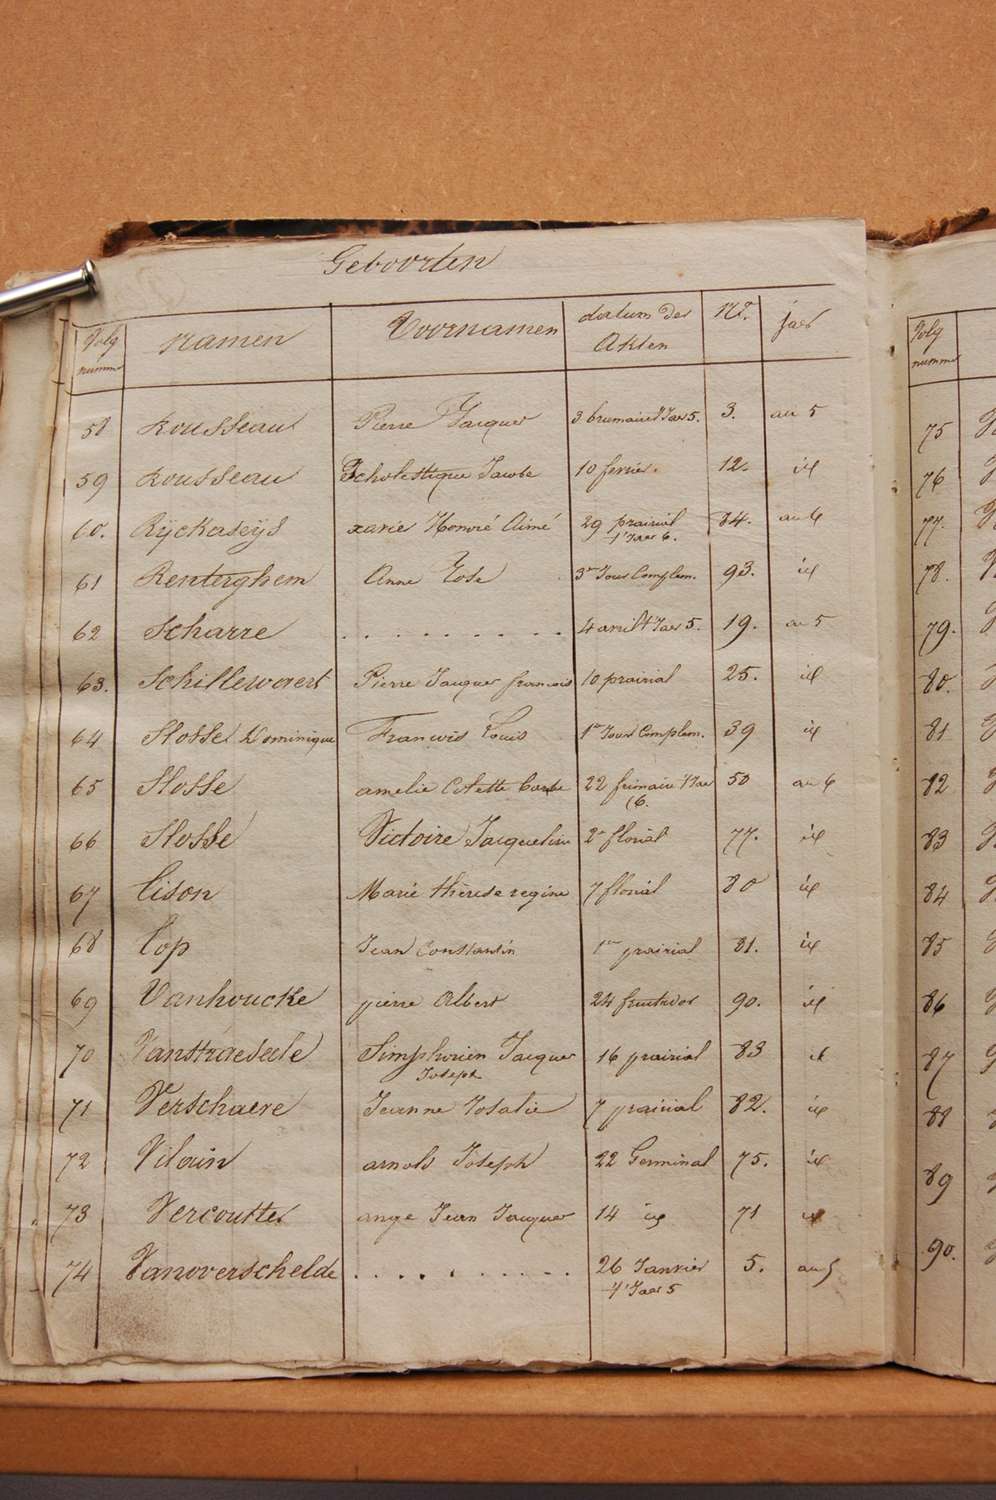 Geboorten
Volg numme Namen Voornamen datum der Akten No. jaer
58 Rousseau Pierre Jacques 3 brumaire 't Jaer 5. 3. au 5
59 Rousseau Scholestique Jacobe 10 fevrier. 12. id
60. Ryckaseÿs xavié Honoré Aimé 29 prairial 't Jaer 6. 84. au 6
61 Renterghem Anne Rose 3e Jour Complem. 93. id
62 Scharre . . . . . . . . . 4 avril 't Jaer 5. 19. au 5
63. Schillewaert Pierre Jacques francois 10 prairial 25. id
64 Slosse Dominique Francois Louis 1er Jour Complem. 39 id
65 Slosse amelie Colette barbe 22 frimaire 't Jaer 6. 50 au 6
66 Slosse Victoire Jacqueline 2e florial 77. id
67 Tison Marie thérese regine 7 florial 80 id
68 Top Jean Constantin 1er prairial 81. id
69 Vanhoucke pierre Albert 24 fructidor 90. id
70 Vanstraeseele Simphorien Jacques Joseph 16 prairial 83 id
71 Verschaere Jeanne Rosalie 7 prairial 82. id
72 Vilain arnold Joseph 22 Germinal 75. id
73 Vercoutter ange Jean Jacques 14 id 71 id
74 Vanoverschelde . . . . . . . . . 26 Janvier 't Jaer 5 5. au 5
Volg numme
75
76
77.
78.
79.
80.
81
82
83
84
85
86
87
88
89
90.